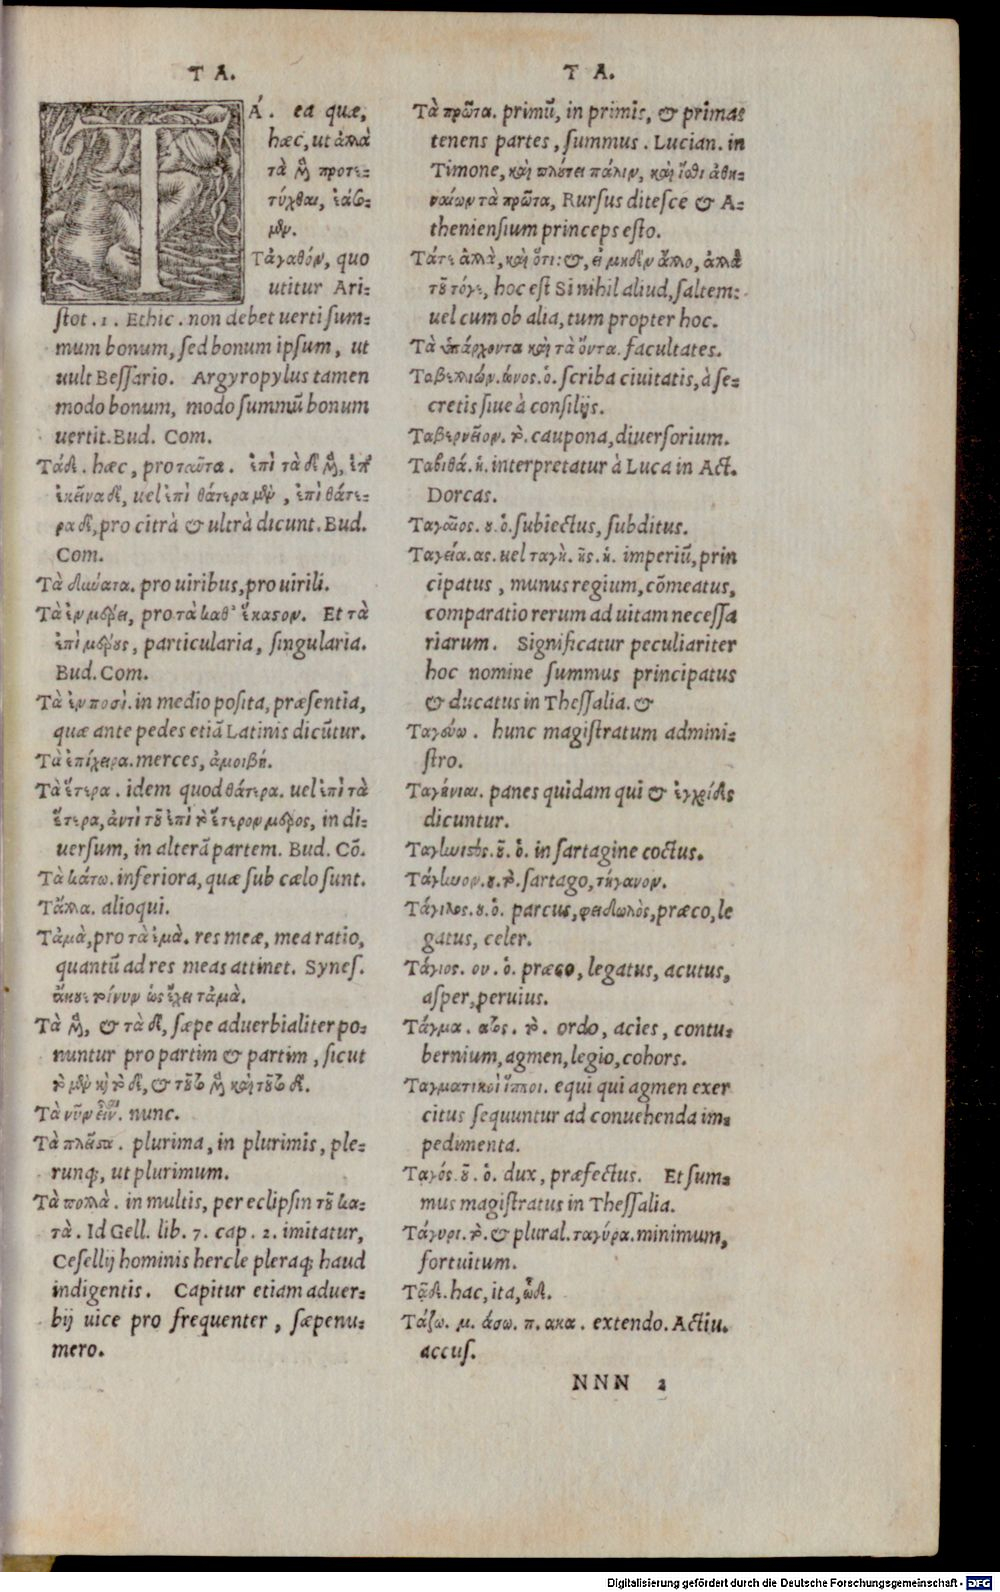 T A.
TÁ. ea quæ,
hæc, ut ἀλλὰ
τὰ μὴ προτε-
τύχθαι, ἐάσο-
μεν.
Τἀγαθόν, quo
utitur Ari-
ſtot. 1. Ethic. non debet uerti ſum-
mum bonum, ſed bonum ipſum, ut
uult Beſſario. Argyropylus tamen
modo bonum, modo ſummũ bonum
uertit. Bud. Com.
Τάδε. hæc, pro ταῦτα. ἐπὶ τὰ δὲ μὴ, ἐπ'
ἐκεῖνα δὲ, uel ἐπὶ θάτερα μὲν, ἐπὶ θάτε-
ρα δὲ, pro citrà & ultrà dicunt. Bud.
Com.
Τὰ δυνατα. pro uiribus, pro uirili.
Τὰ ἐν μέρει, pro τὰ καθ' ἕκαστον. Et τὰ
ἐπὶ μέρους, particularia, ſingularia.
Bud. Com.
Τὰ ἐν ποσὶ. in medio poſita, præſentia,
quæ ante pedes etiã Latinis dicũtur.
Τὰ ἐπίχειρα. merces, ἀμοιβή.
Τὰ ἕτερα. idem quod θάτερα. uel ἐπὶ τὰ
ἕτερα, ἀντὶ τοῦ ἐπὶ τὸ ἕτερον μέρος, in di-
uerſum, in alterã partem. Bud. Cõ.
Τὰ κάτω. inferiora, quæ ſub cælo ſunt.
Τἄλλα. alioqui.
Τἀμὰ, pro τὰ ἐμὰ. res meæ, mea ratio,
quantũ ad res meas attinet. Syneſ.
ἄκουε τοίνυν ὡς ἔχει τἀμὰ.
Τὰ μὲν, & τὰ δὲ, ſæpe aduerbialiter po-
nuntur pro partim & partim, ſicut
τὸ μὲν καὶ τὸ δὲ, & τοῦτο μὲν καὶ τοῦτο δὲ.
Τὰ νῦν εἶναι. nunc.
Τὰ πλεῖστα. plurima, in plurimis, ple-
runq;, ut plurimum.
Τὰ πολλὰ. in multis, per eclipſin τοῦ κα-
τὰ. Id Gell. lib. 7. cap. 2. imitatur,
Ceſellij hominis hercle pleraq; haud
indigentis. Capitur etiam aduer-
bij uice pro frequenter, ſæpenu-
mero.
T A.
Τὰ πρῶτα. primũ, in primis, & primas
tenens partes, ſummus. Lucian. in
Timone, καὶ πλούτει πάλιν, καὶ ἴσθι ἀθη-
ναίων τὰ πρῶτα, Rurſus diteſce & A-
thenienſium princeps eſto.
Τάτε ἄλλὰ, καὶ ὅτι: &, εἰ μηδὲν ἄλλο, ἀλλὰ
τοῦ τόγε, hoc eſt Si nihil aliud, ſaltem:
uel cum ob alia, tum propter hoc.
Τὰ ὑπάρχοντα καὶ τὰ ὄντα. facultates.
Ταβελλιών. ῶνος. ὁ. ſcriba ciuitatis, à ſe-
cretis ſiue à conſilijs.
Ταβερνεῖον. τὸ. caupona, diuerſorium.
Ταβιθά. ἡ. interpretatur à Luca in Act.
Dorcas.
Ταγαῖος. ου. ὁ. ſubiectus, ſubditus.
Ταγεία. ας. uel ταγὴ. ῆς. ἡ. imperiũ, prin
cipatus, munus regium, cõmeatus,
comparatio rerum ad uitam neceſſa
riarum. Significatur peculiariter
hoc nomine ſummus principatus
& ducatus in Theſſalia. &
Ταγεύω. hunc magiſtratum admini-
ſtro.
Ταγένιαι. panes quidam qui & ἐγχρίδες
dicuntur.
Ταγηνιστὸς. οῦ. ὁ. in ſartagine coctus.
Τάγηνον. ου. τὸ. ſartago, τήγανον.
Τάγιλος. ου. ὁ. parcus, φειδωλὸς, præco, le
gatus, celer.
Τάγιος. ου. ὁ. præco, legatus, acutus,
aſper, peruius.
Τάγμα. ατος. τὸ. ordo, acies, contu-
bernium, agmen, legio, cohors.
Ταγματικοὶ ἵπποι. equi qui agmen exer
citus ſequuntur ad conuehenda im-
pedimenta.
Ταγός. οῦ. ὁ. dux, præfectus. Et ſum-
mus magiſtratus in Theſſalia.
Τάγυρι. τὸ. & plural. ταγύρα. minimum,
fortuitum.
Τᾷδε. hac, ita, ὧδε.
Τάζω. μ. άσω. π. ακα. extendo. Actiu.
accuſ.
NNN 2
Digitalisierung gefördert durch die Deutsche Forschungsgemeinschaft - DFG